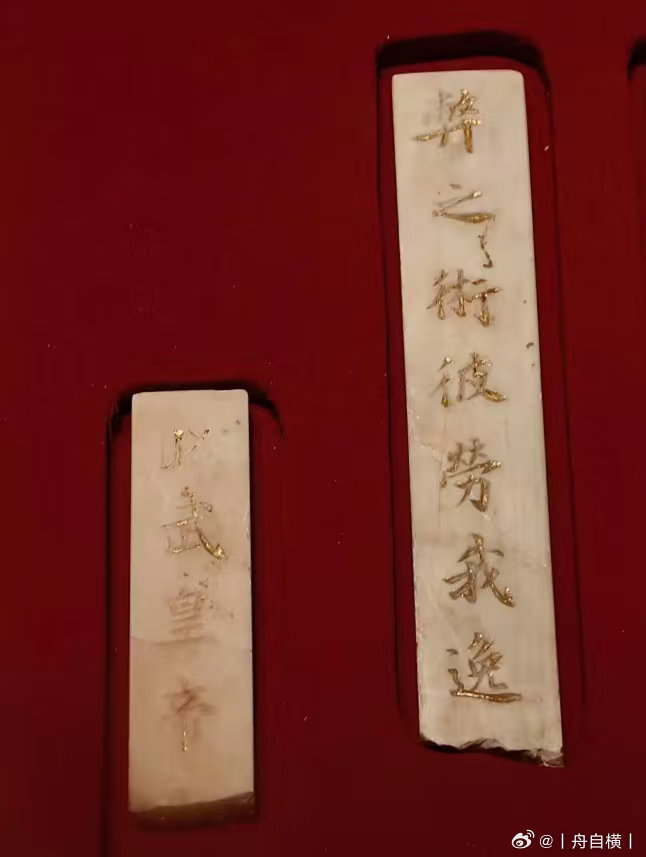 弊之術彼勞我逸
武皇帝
@丨舟自横丨